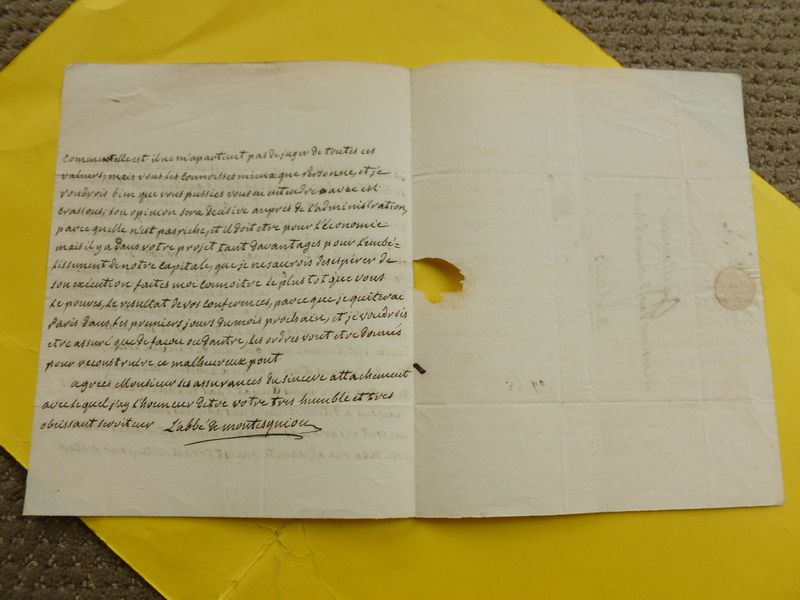 comme elle est il ne m'apartient pas de juger de toutes ces
valeurs, mais vous les connoisses mieux que Personne, et je
voudrois bien que vous pussies vous en entendre avec
son opinion sera decisive aupres de L'administration,
parce quelle n'est pas riche, et il doit etre pour L'économie
mais il y a dans votre projet tant davantages pour Lembé-
lissement de notre capitale, que je ne saurois desesperer de
son execution faites moi connoitre Le plus tot que vous
Le pouves, Le resultat de vos conferences, parce que je quiterai
Paris dans Les premiers jours du mois prochain, et je voudrois
etre assuré que de façon ou dautre, Les ordres vont etre donnés
pour reconstruire ce malheureux pont
agrées Monsieur Les assurances du sincere attachement
avec Lequel j'ay L'honneur detre votre tres humble et tres
obeissant serviteur L'abbé de montesquiou